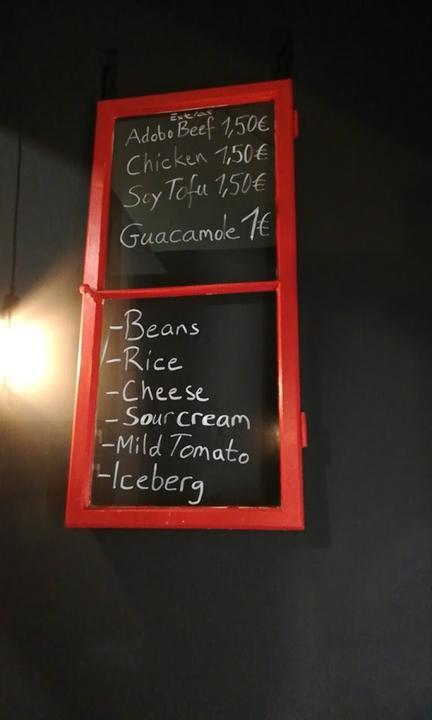 Extras
Adobo Beef 1,50€
Chicken 1,50€
Soy Tofu 1,50€
Guacamole 1€
-Beans
-Rice
-Cheese
-Sour cream
-Mild Tomato
-Iceberg